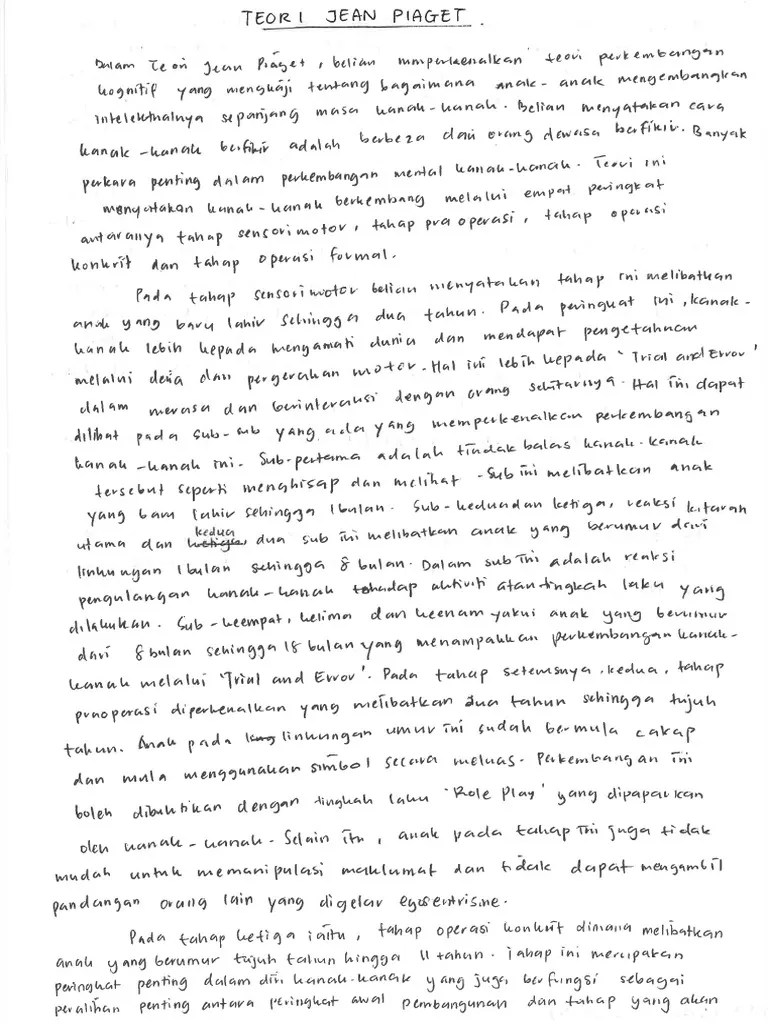 TEORI JEAN PIAGET.
Dalam Teori Jean Piaget, beliau memperkenalkan teori perkembangan
kognitif yang mengkaji tentang bagaimana anak-anak mengembangkan
intelektualnya sepanjang masa kanak-kanak. Beliau menyatakan cara
kanak-kanak berfikir adalah berbeza dari orang dewasa berfikir. Banyak
perkara penting dalam perkembangan mental kanak-kanak. Teori ini
menyatakan kanak-kanak berkembang melalui empat peringkat
antaranya tahap sensorimotor, tahap pra operasi, tahap operasi
konkrit dan tahap operasi formal.
Pada tahap sensorimotor beliau menyatakan tahap ini melibatkan
anak yang baru lahir sehingga dua tahun. Pada peringkat ini, kanak-
kanak lebih kepada mengamati dunia dan mendapat pengetahuan
melalui deria dan pergerakan motor. Hal ini lebih kepada 'Trial and Error'
dalam merasa dan berinteraksi dengan orang sekitarnya. Hal ini dapat
dilihat pada sub-sub yang ada yang memperkenalkan perkembangan
kanak-kanak ini. Sub-pertama adalah tindak balas kanak-kanak
tersebut seperti menghisap dan melihat. Sub ini melibatkan anak
yang baru lahir sehingga 1 bulan. Sub-kedua dan ketiga, reaksi kitaran
utama dan kedua, dua sub ini melibatkan anak yang berumur dari
linkungan 1 bulan sehingga 8 bulan. Dalam sub ini adalah reaksi
pengulangan kanak-kanak terhadap aktiviti atau tingkah laku yang
dilakukan. Sub-keempat, kelima dan keenam yakni anak yang berumur
dari 8 bulan sehingga 18 bulan yang menampakkan perkembangan kanak-
kanak melalui 'Trial and Error'. Pada tahap seterusnya, kedua, tahap
praoperasi diperkenalkan yang melibatkan dua tahun sehingga tujuh
tahun. Anak pada linkungan umur ini sudah bermula cakap
dan mula menggunakan simbol secara meluas. Perkembangan ini
boleh dibuktikan dengan tingkah laku 'Role Play' yang dipaparkan
oleh kanak-kanak. Selain itu, anak pada tahap ini juga tidak
mudah untuk memanipulasi maklumat dan tidak dapat mengambil
pandangan orang lain yang digelar egosentrisme.
Pada tahap ketiga iaitu, tahap operasi konkrit dimana melibatkan
anak yang berumur tujuh tahun hingga 11 tahun. Tahap ini merupakan
peringkat penting dalam diri kanak-kanak yang juga berfungsi sebagai
peralihan penting antara peringkat awal pembangunan dan tahap yang akan